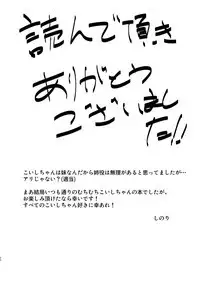 読んで頂き
ありがとう
ございまし
た!!
こいしちゃんは妹なんだから姉役は無理があると思ってましたが…
アリじゃない?(適当)
まあ結局いつも通りのむちむちこいしちゃんの本でしたが、
お楽しみ頂けたなら幸いです!
すべてのこいしちゃん好きに幸あれ!
しのり